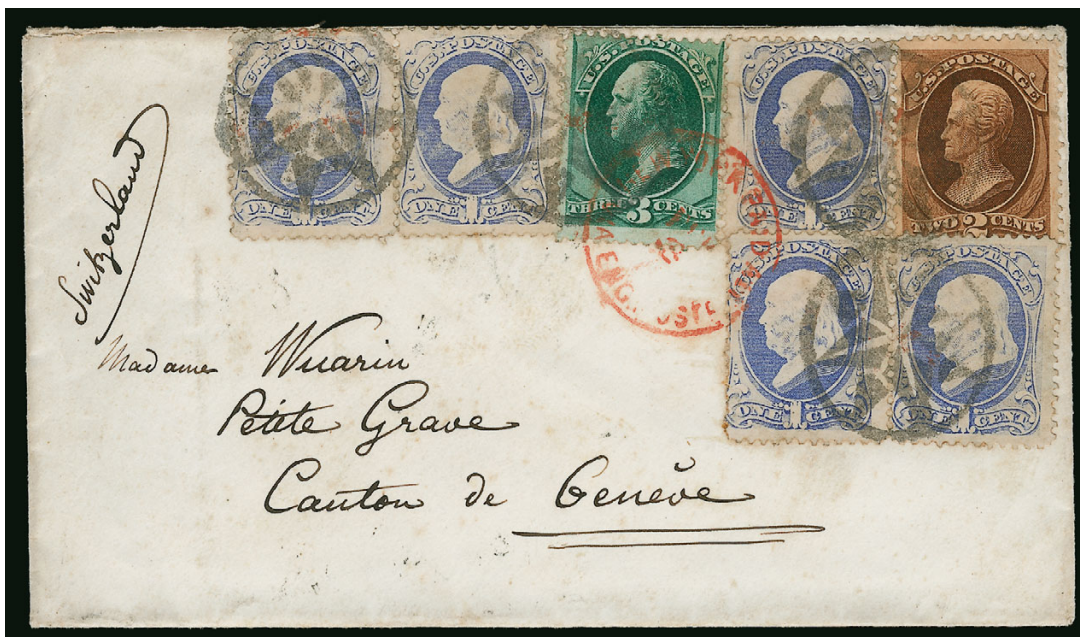 U.S. POSTAGE
ONE 1 CENT
U.S. POSTAGE
ONE 1 CENT
U.S. POSTAGE
THREE 3 CENTS
U.S. POSTAGE
ONE 1 CENT
U.S. POSTAGE
TWO 2 CENTS
U.S. POSTAGE
ONE 1 CENT
U.S. POSTAGE
ONE 1 CENT
Switzerland
Madame Wuarin
Petite Grave
Canton de Genève